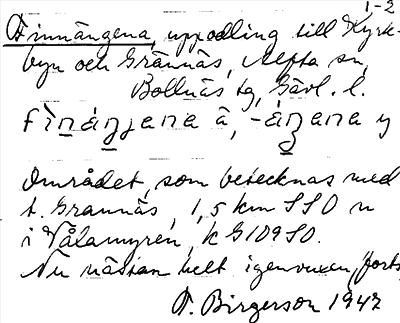 1-2
Finnängena, uppodling till Kyrk-
byn och Grännäs, Alfta sn,
Bollnäs tg, Gävl. l.
fìnáŋ̀jana â, -áŋana y
Området, som betecknas med
t. Grannäs, 1,5 km SSO n
i Våtamyren, k G 109 SO.
Nu nästan helt igenvuxen, (forts.
F. Birgerson 1947